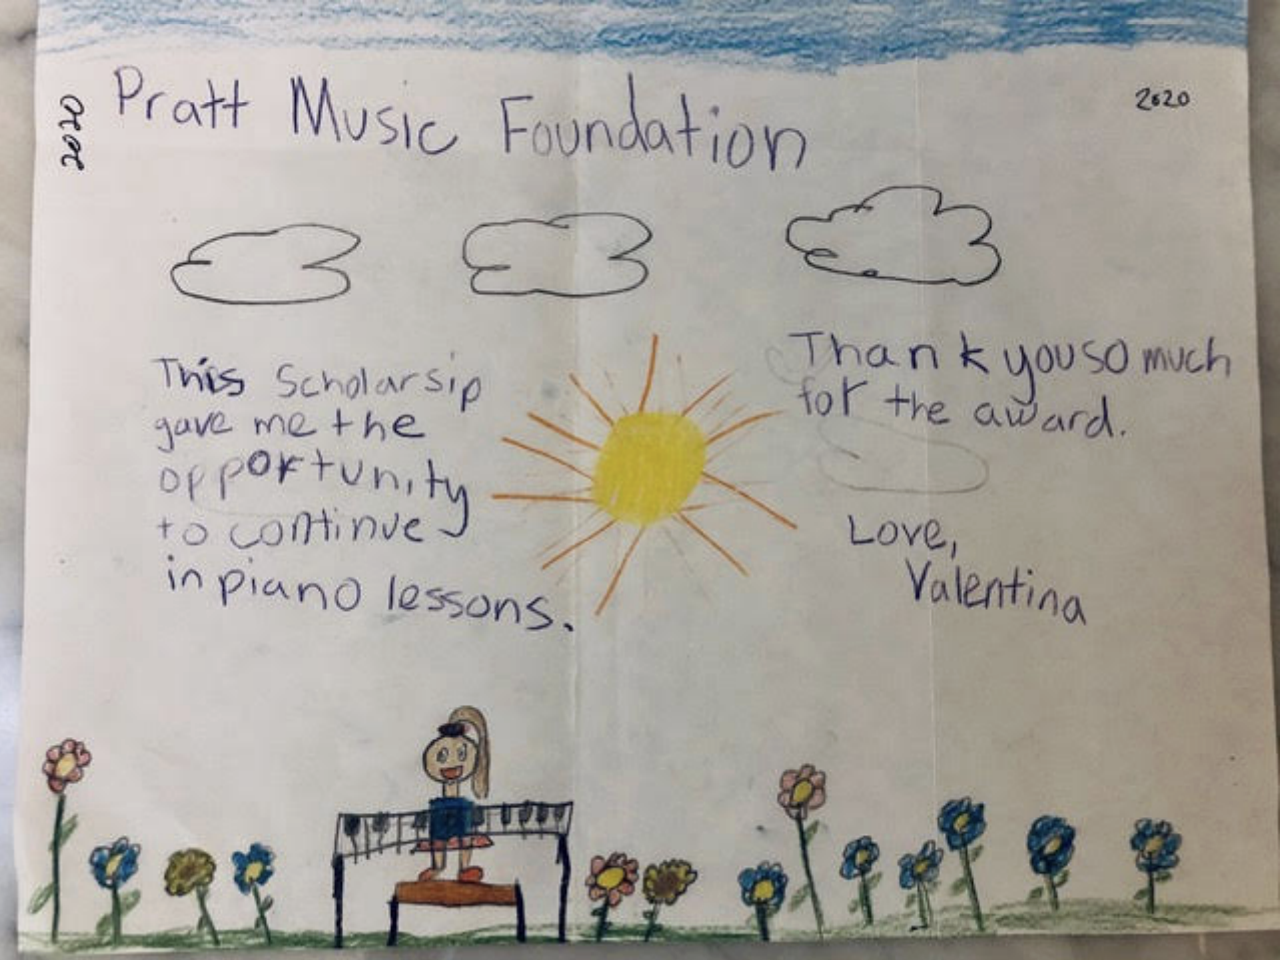 Pratt Music Foundation
2020
2020
This Scholarsip
gave me the
opportunity
to continue
in piano lessons.
Thank you so much
for the award.
Love,
Valentina